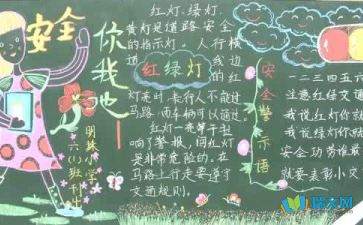 安全
你我他
明珠小学
六(1)班刊出
红灯、绿灯、
黄灯是道路安全
的指示灯。人行横
道
红绿灯
线边
的红
灯亮时,行人不能过
马路,而车辆可以通过。
红灯一亮等于
响了警报,闯红灯
是非常危险的。在
马路上行走要遵守
交通规则。
安全警示语
一二三四五
注意红绿交通
我说红灯你就
我说绿灯你
安全功劳谁最
就要表彰小交